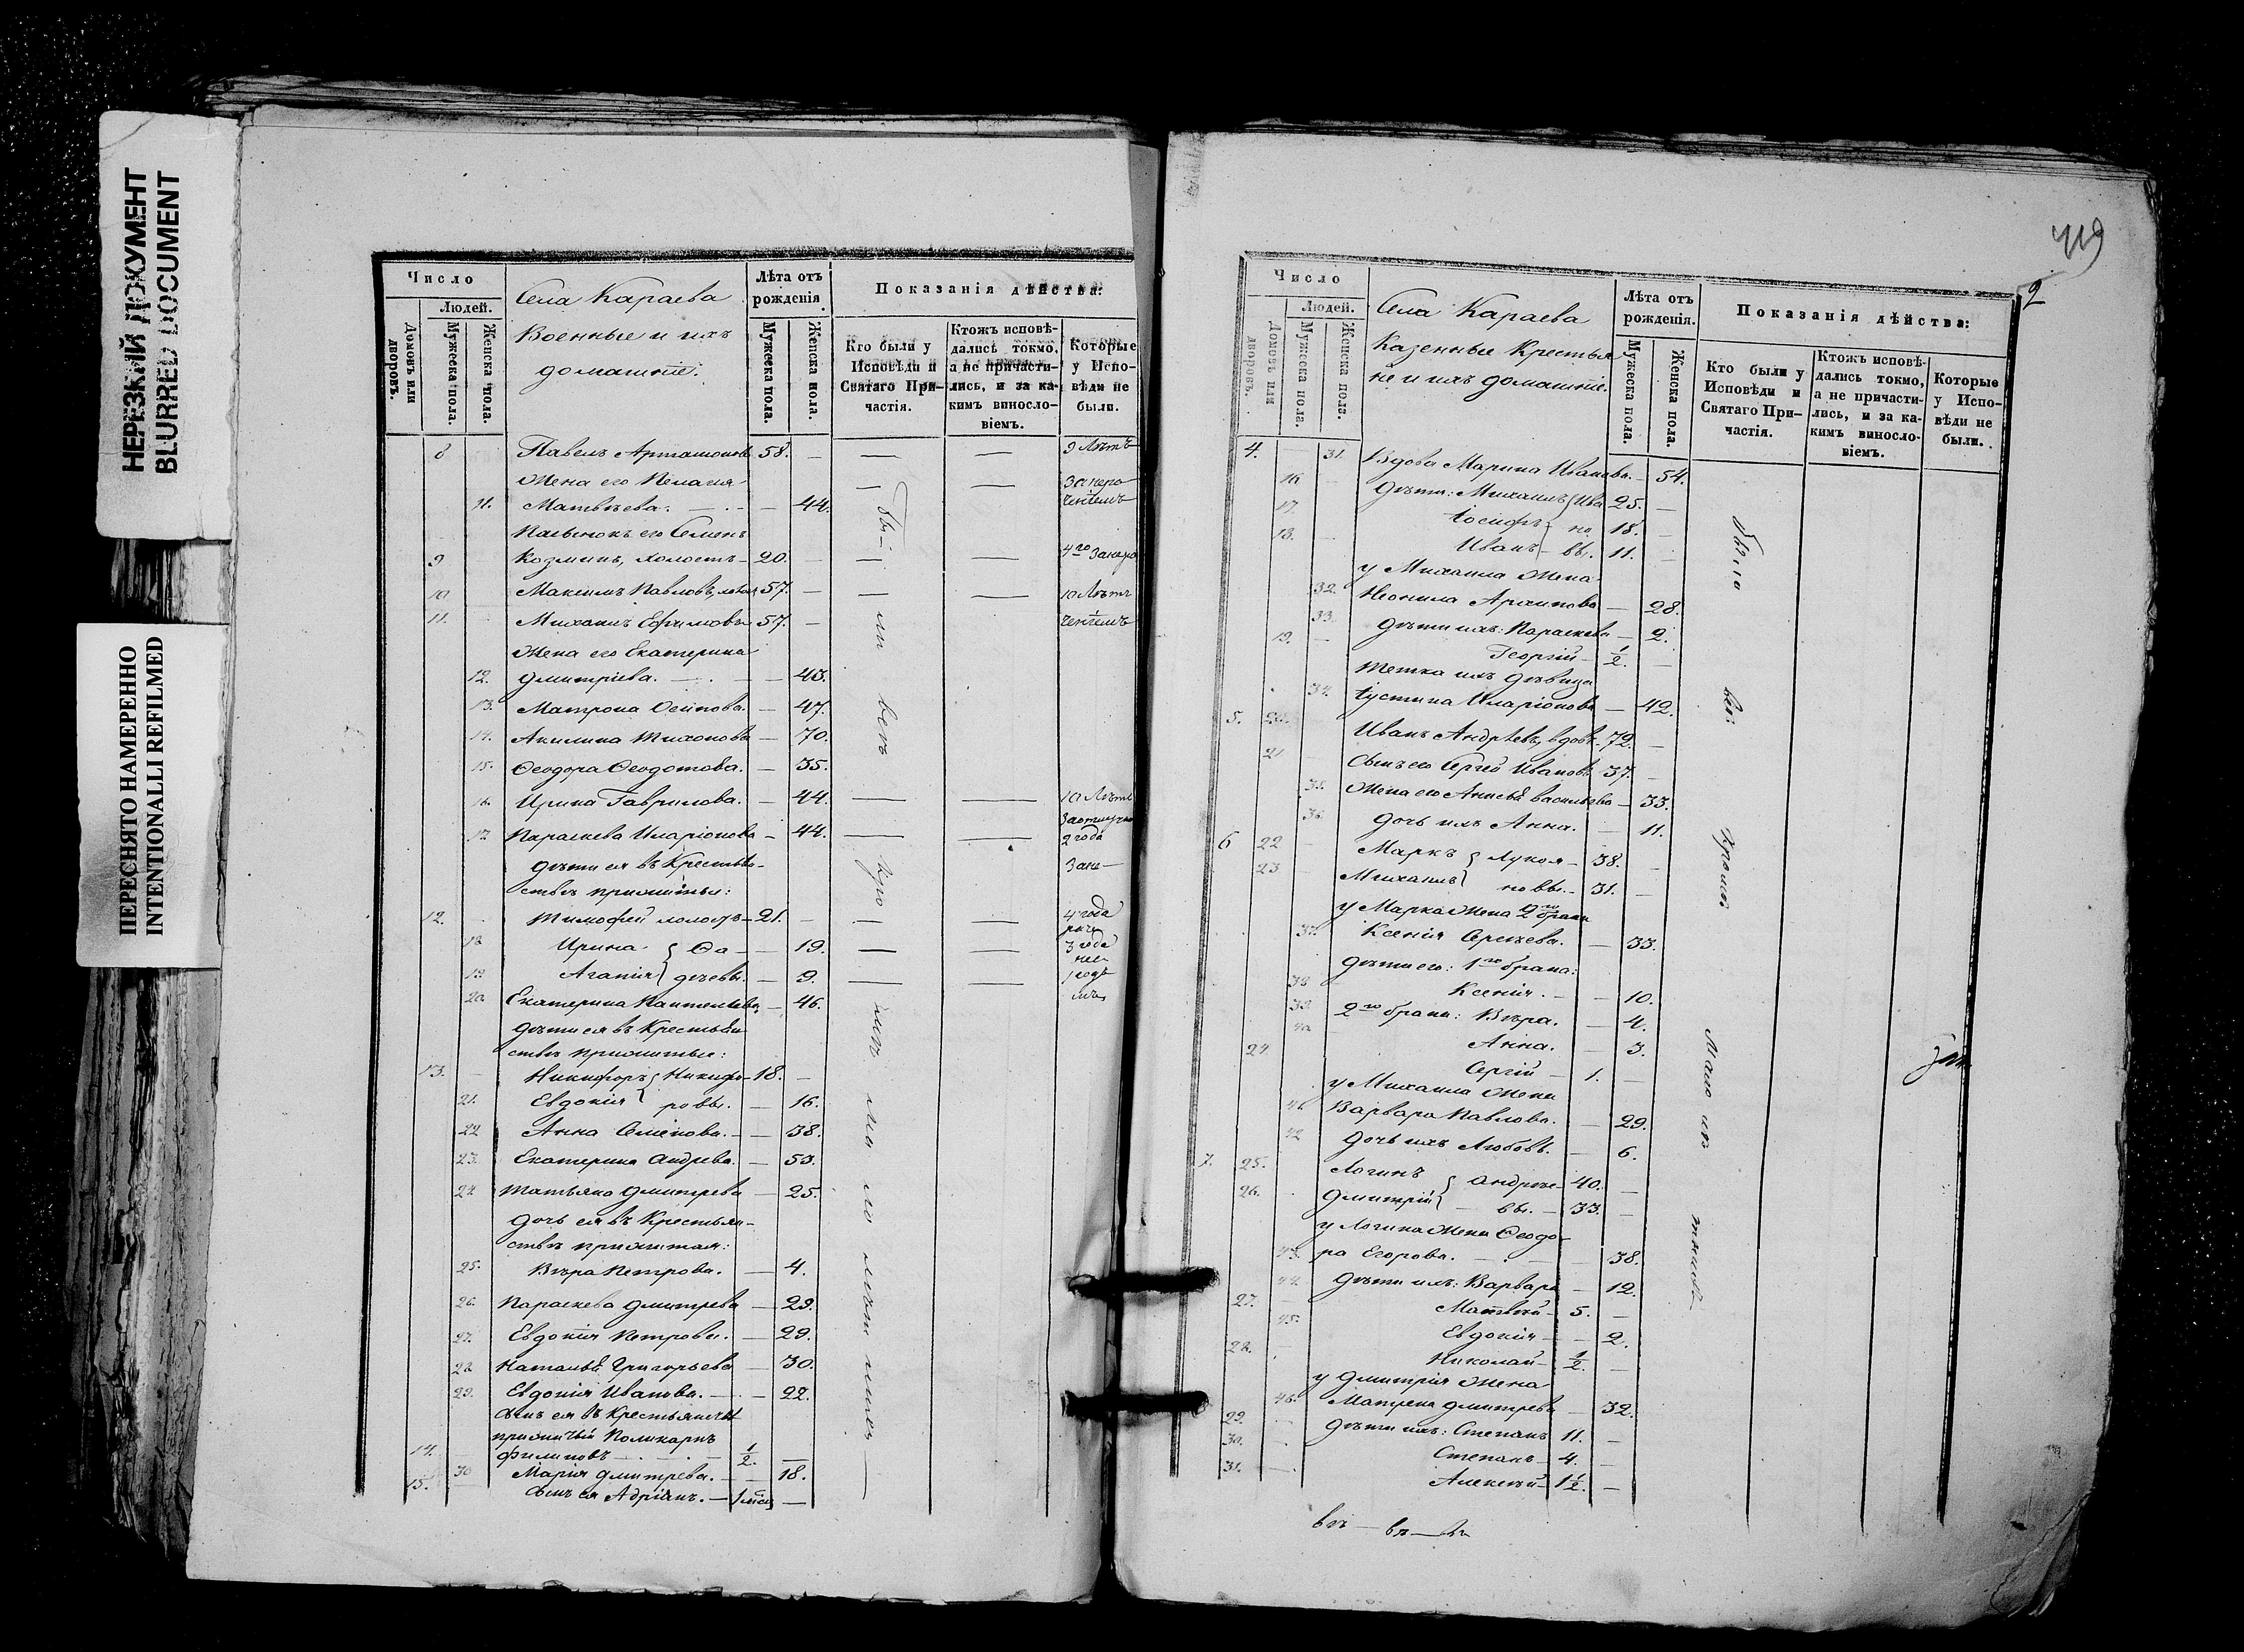 НЕРЕЗКИЙ ДОКУМЕНТ
BLURRED DOCUMENT
ПЕРЕСНЯТО НАМЕРЕННО
INTENTIONALLI REFILMED
Число
Людей.
Домовъ или дворовъ.
Мужеска пола.
Женска пола.
Села Караева
Военные и ихъ
домашніе.
Лѣта отъ рожденія.
Мужеска пола.
Женска пола.
Показанія дѣйства:
Кто были у Исповѣди и Святаго Причастія.
Ктожъ исповѣдались токмо, а не причастились, и за какимъ винословіемъ.
Которые у Исповѣди не были.
8 Павелъ Артамоновъ 58. — — — 9 Лѣтъ
Жена его Пелагія — — занеро
11. Матвѣева. — 44. ченіемъ
Пасынокъ его Семенъ
9 Козминъ, холостъ — 20. — — — 4го Занеро
10 Максимъ Павловъ, 57. — — — 10 Лѣтъ
11. Михаилъ Ефимовъ 57. — ченіемъ
Жена его Екатерина
12. Дмитріева. — 43.
13. Матрона Осипова. — 47.
14. Акилина Тихонова — 70.
15. Ѳеодора Ѳеодотова. — 35.
16. Ирина Гаврилова. — 44. — — 10 Лѣтъ
17. Параскева Иларіонова — 44. — — 2 года
дѣти ея въ Крестьян-
ствѣ прижитыя:
12. Тимофей холостъ — 21. — — — 4 года
18 Ирина Ѳа — — 19. — — 3 года
19 Агапія дѣевы. — 9. — —
20 Екатерина Пантелѣева — 46.
дѣти ея въ Крестьян
ствѣ прижитые:
13. Никифоръ Никифо — 18. —
21. Евдокія ровы. — 16.
22 Анна Семенова. — 38.
23. Екатерина Андрева. — 53.
24. Татьяна Дмитрева — 25.
дочь ея въ Крестьян-
ствѣ прижитая:
25. Вѣра Петрова. — 4.
26. Параскева Дмитрева — 29.
27. Евдокія Петрова. — 29.
28 Наталья Григорьева — 30.
29. Евдокія Иванова. — 22.
Сынъ ея въ Крестьянствѣ
прижитый Поликарпъ
14. Филиповъ — 1/2. —
30 Марія Дмитрева. — 18.
15. Сынъ ея Адріянъ. — 1 мѣсяц —
419
2
Число
Людей.
Домовъ или дворовъ.
Мужеска пола.
Женска пола.
Села Караева
Казенные Крестья
не и ихъ домашніе.
Лѣта отъ рожденія.
Мужеска пола.
Женска пола.
Показанія дѣйства:
Кто были у Исповѣди и Святаго Причастія.
Ктожъ исповѣдались токмо, а не причастились, и за какимъ винословіемъ.
Которые у Исповѣди не были.
4. 31. Вдова Марина Иванова. — 54.
16 Дѣти: Михаилъ Ива 25. —
17. Іосифъ — но 18. —
18. Иванъ — вы. 11. —
у Михаила жена
32. Неонила Архипова — 28.
33. дѣти ихъ: Параскева — 2.
19. Георгій — 1/2. —
Тетка ихъ дѣвица
34. Іустина Иларіонова — 42.
5. 20. Иванъ Андрѣевъ, вдовъ. 72. —
21 Сынъ его Сергей Ивановъ 37. —
35. Жена его Анисья Васильева — 33.
36. дочь ихъ Анна. — 11.
6 22 Маркъ Лукоя — 38. —
23 Михаилъ новы. — 31. —
у Марка жена 2го брака
37. Ксенія Сергѣева. — 33.
дѣти его: 1го брака:
38 Ксенія. — 10.
39. 2го брака: Вѣра. — 4.
40 Анна. — 3.
24 Сергій — 1. —
у Михаила жена
41 Варвара Павлова. — 29.
42 дочь ихъ Любовь. — 6.
7. 25. Логинъ Андрѣе — 40. —
26. Дмитрій вы. — 33. —
у Логина жена Ѳеодо-
43. ра Егорова. — 38.
44. дѣти ихъ: Варвара — 12.
27. Матвѣй — 5. —
45. Евдокія — 2.
28. Николай — 1/2. —
у Дмитрія жена
46. Матрена Дмитрева — 32.
29. дѣти ихъ: Степанъ 11. —
30. Степанъ — 4. —
31. Алексѣй — 1 1/2. —